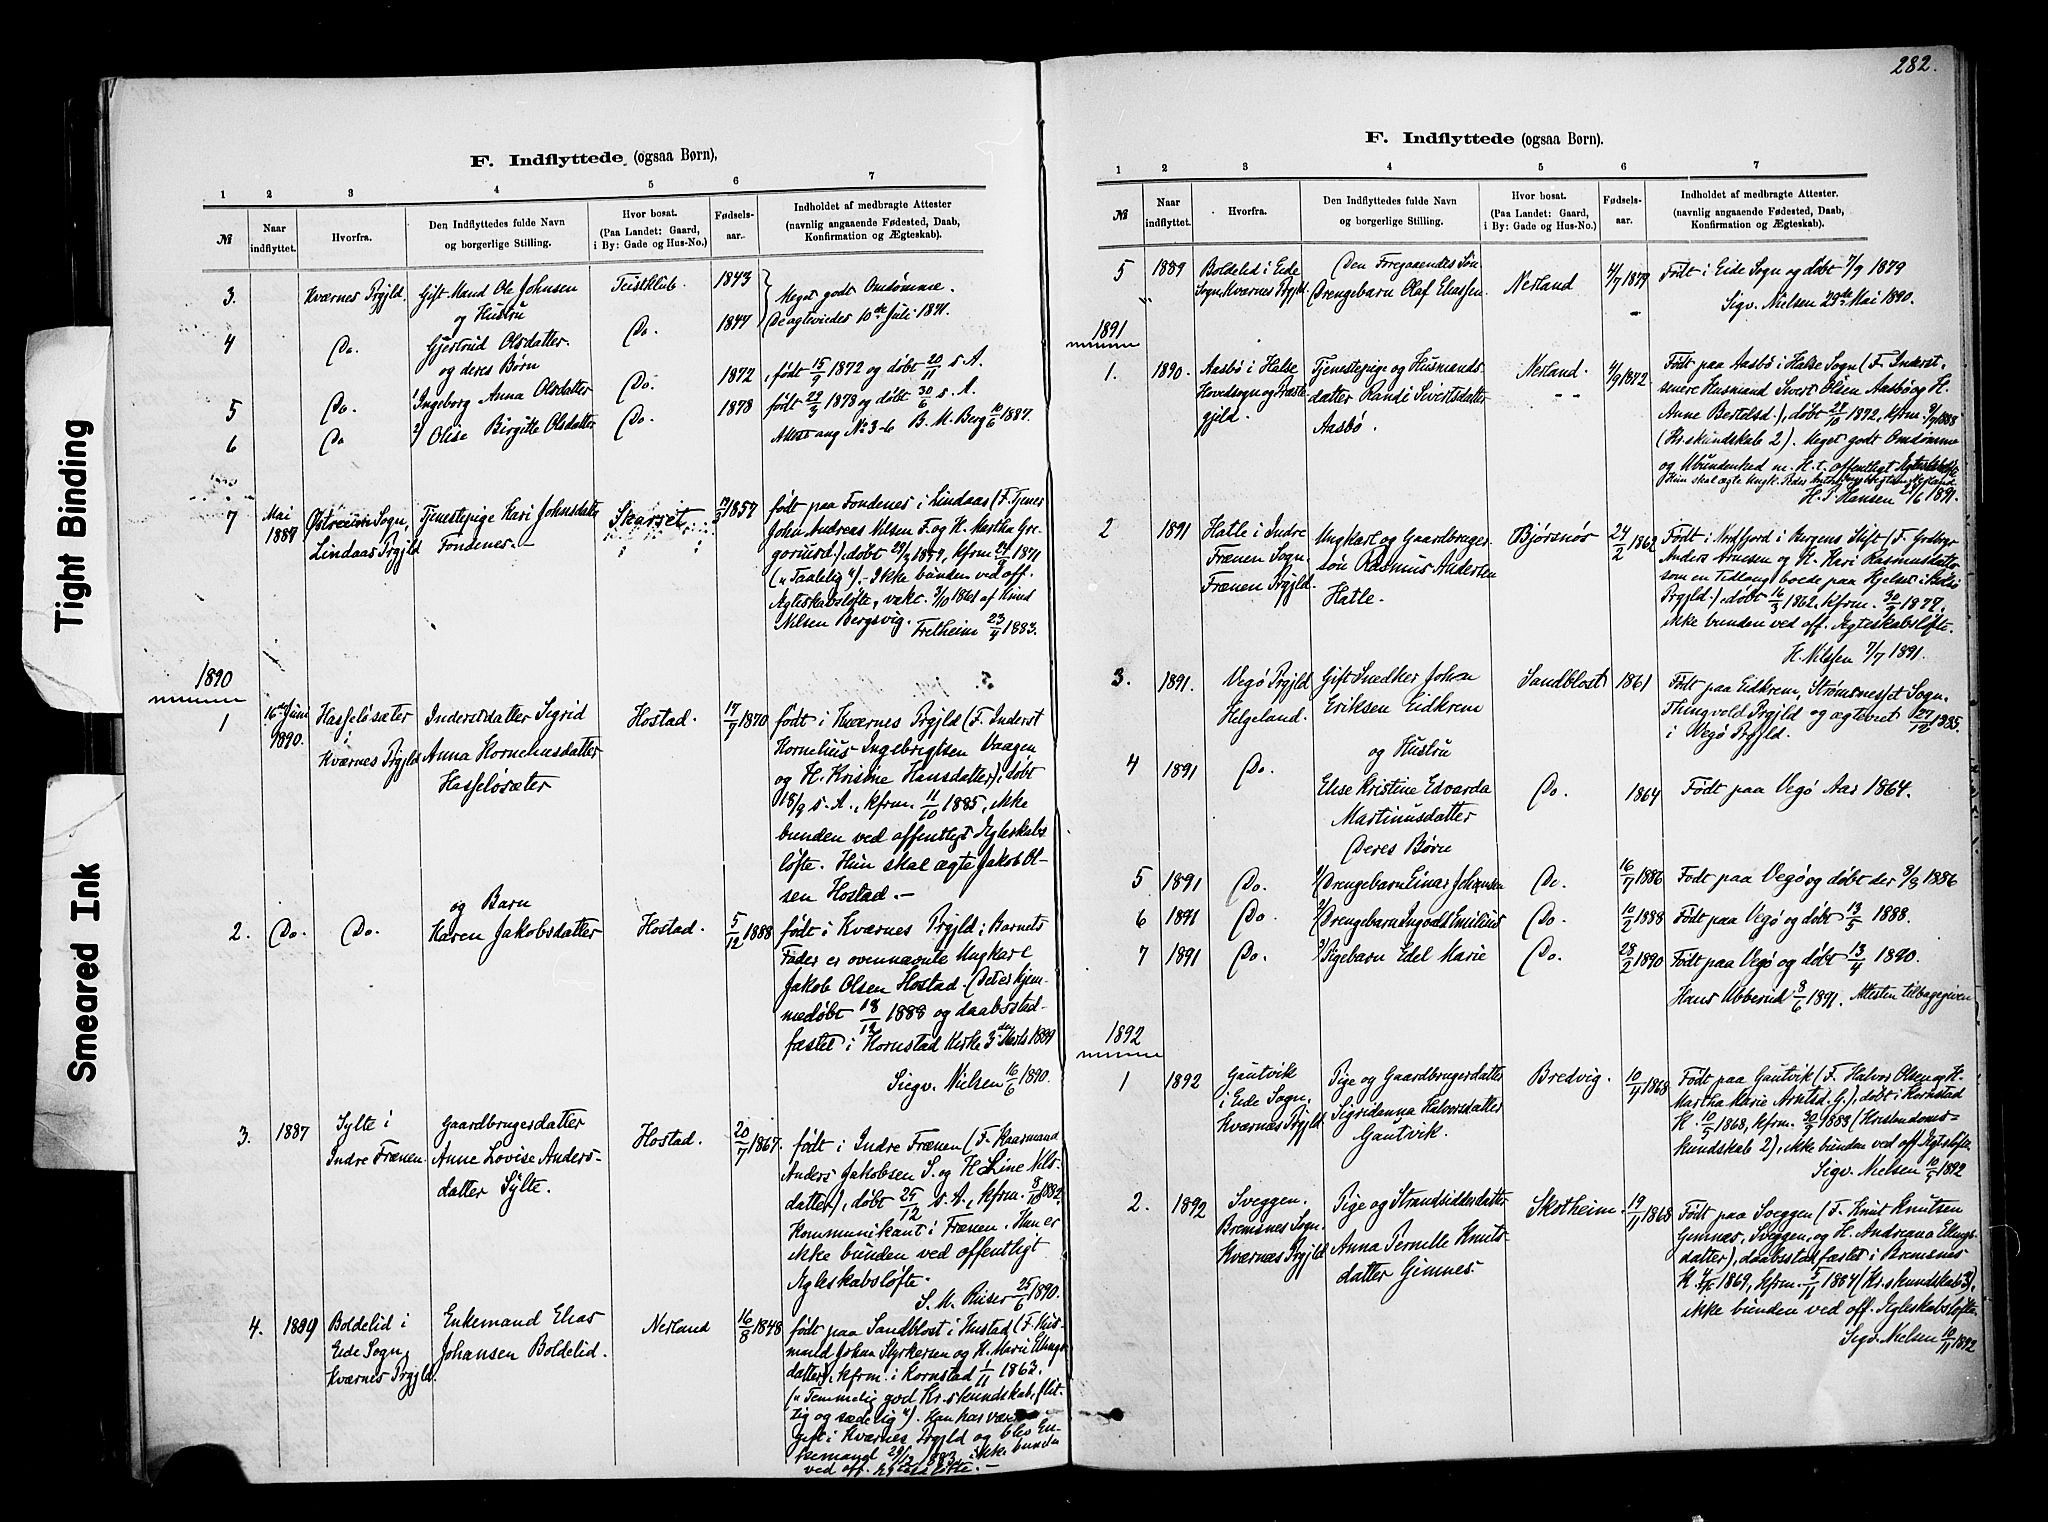 282.
Tight Binding
Smeared Ink
F. Indflyttede (ogsaa Børn),
1 2 3 4 5 6 7
№ Naar indflyttet. Hvorfra. Den Indflyttedes fulde Navn og borgerlige Stilling. Hvor bosat. (Paa Landet: Gaard, i By: Gade og Hus-No.) Fødsels-aar. Indholdet af medbragte Attester (navnlig angaaende Fødested, Daab, Konfirmation og Ægteskab).
3. Kværnes Prgjld. Gift Mand Ole Johnsen Teistklub. 1843 Meget godt Omdømme.
og Hustru
4 Do. Gjertrud Olsdatter. Do. 1847 De ægteviedes 10de Juli 1871.
og deres Børn
5 Do. 1 Ingeborg Anna Olsdatter Do. 1872 født 15/9 1872 og døbt 20/11 s. A.
6 Do 2) Olise Birgitte Olsdatter Do. 1878 født 29/3 1878 og døbt 30/6 s. A.
Attest ang No 3-6 B. M. Berg 10/6 1887.
7 Mai 1889 Østreim Sogn, Tjenestepige Kari Johnsdatter Skarset 1857 født paa Fondenes i Lindaas (F. Tjener
Lindaas Prgjld Fondenes. - John Andreas Nilsen F. og H. Martha Gre-
goriusd.), døbt 29/3 1857, kfrm. 24/9 1871
("Taalelig"). - Ikke bunden ved off.
Ægteskabsløfte, vakc. 3/10 1861 af Knud
Nilsen Bergsvig. Frelheim 23/4 1883.
1890
1 16de Juni 1890. Hasseløsæter Inderstdatter Sigrid Hostad. 17/9 1870 født i Kværnes Prgjld (F. Inderst
Kværnes Prgjld Anna Korneliusdatter Kornelius Ingebrigtsen Vaagen
Hasseløsæter og H. Kristine Hansdatter), døbt
18/9 s. A., kfrm. 11/10 1885, ikke
bunden ved offentligt Ægteskabs
løfte. Hun skal ægte Jakob Ol-
sen Hostad. -
og Barn
2. Do. Do. Karen Jakobsdatter Hostad. 5/12 1888 født i Kværnes Prgjld; Barnets
Fader er ovennævnte Ungkarl
Jakob Olsen Hostad. (Deres hjem-
medøbt 18/12 1888 og daabsstad-
fæstet i Kornstad Kirke 3die Marts 1889
Sigv. Nielsen 16/6 1890.
3. 1887 Sylte i Gaardbrugerdatter Hostad. 20/7 1867. født i Indre Frænen (F. Kaarmand
Indre Frænen. Anne Lovise Anders- Anders Jakobsen S. og H. Line Nils-
datter Sylte. datter), døbt 25/12 s. A., kfrm. 8/10 1882.
Kommunikant i Frænen. Hun er
ikke bunden ved offentligt
Ægteskabsløfte.
S. M. Riiser 25/6 1890.
4. 1889 Boldelid i Enkemand Elias Nerland 16/8 1848 født paa Sandblost i Hustad (F. Hus-
Eide Sogn, Johansen Boldelid. mand Johan Styrkersen og H. Marie Ellings
Kværnes Prgjld. datter), kfrm. i Kornstad 1/11 1863.
("Temmelig god Kr.skundskab, flit-
tig og sædelig"). Han har været
gift i Kværnes Prgjld og blev En-
kemand 29/12 1883, ikke bunden
ved off. Ægteskabsløfte. -
F. Indflyttede (ogsaa Børn).
1 2 3 4 5 6 7
№ Naar indflyttet. Hvorfra. Den Indflyttedes fulde Navn og borgerlige Stilling. Hvor bosat. (Paa Landet: Gaard, i By: Gade og Hus-No.) Fødsels-aar. Indholdet af medbragte Attester. (navnlig angaaende Fødested, Daab, Konfirmation og Ægteskab).
5 1889 Boldelid i Eide Den Foregaaendes Søn Nerland 4/7 1879 Født i Eide Sogn og døbt 7/9 1879
Sogn, Kværnes Prgjld. Drengebarn Olaf Eliassen. Sigv. Nielsen 29de Mai 1890.
1891
1. 1890. Aasbø i Halse Tjenestepige og Husmands Nerland. 4/9 1872 Født paa Aasbø i Halse Sogn (F. Inderst,
Hovedsogn og Præste datter Randi Sivertsdatter senere Husmand Sivert Olsen Aasbø og H.
gjeld. Aasbø. Anne Bertelsd.), døbt 27/10 1872, kfrm. 9/9 1888
(Kr.skundskab 2). Meget godt Omdømme
og Ubundenhed m. H. t. offentligt Ægteskabsløfte
H. P. Hansen 21/6 1891.
2 1891 Hatle i Indre Ungkarl og Gaardbruger- Bjørsnøs 24/2 1862 Født i Nordfjord i Bergens Stift (F. Grdbgr
Frænen Sogn. søn Rasmus Andersen Anders Arnesen og H. Kari Rasmusdatter
Frænen Prgjld. Hatle. som en Tidlang boede paa Hjelset i Bolsø
Prgjld.), døbt 16/3 1862, kfrm. 30/9 1877,
ikke bunden ved off. Ægteskabsløfte.
H. Nilssen 7/7 1891.
3. 1891. Vegø Prgjld Gift Snedker Johan Sandblost 1861 Født paa Eidkrem, Strømsnesset Sogn.
Helgeland. Eriksen Eidkrem Thingvold Prgjld og ægteviet 27/12 1885.
i Vegø Prgjld.
og Hustru
4 1891 Do. Elise Kristine Edvarda Do. 1864 Født paa Vegø Aar 1864.
Martinusdatter
Deres Børn
5 1891 Do. 1/ Drengebarn Einar Johansen Do. 16/7 1886 Født paa Vegø og døbt der 9/8 1886
6 1891 Do. 2/ Drengebarn Ingvald Emilius Do. 10/2 1888 Født paa Vegø og døbt 13/5 1888.
7 1891 Do. 3/ Pigebarn Edel Marie Do. 28/2 1890 Født paa Vegø og døbt 13/4 1890.
Hans Ubberud 8/6 1891. Attesten tilbagegiven
1892
1 1892 Gautvik Pige og Gaardbrugerdatter Bredvig. 10/4 1868 Født paa Gautvik (F. Halvor Olsen og H.
i Eide Sogn, Sigridanna Halvorsdatter Martha Marie Arntsd. G.), døbt i Kornstad
Kværnes Prgjld Gautvik. K. 10/5 1868, kfrm. 30/9 1883 (Kristendoms-
kundskab 2), ikke bunden ved off. Ægtsløfte.
Sigv. Nielsen 10/5 1892
2. 1892 Sveggen. Pige og Strandsidderdatter Skotheim. 19/11 1868 Født paa Sveggen (F. Knut Knutsen
Bremsnes Sogn. Anna Pernille Knuts- Gimnes, Sveggen, og H. Andreana Ellings
Kværnæs Prgjld datter Gimnes. datter), daabsstadfæstet i Bremsnes
K. 1869, kfrm. 5/11 1884 (Kr.skundskab 3),
ikke bunden ved off. Ægteskabsløfte.
Sigv. Nielsen 10/11 1892